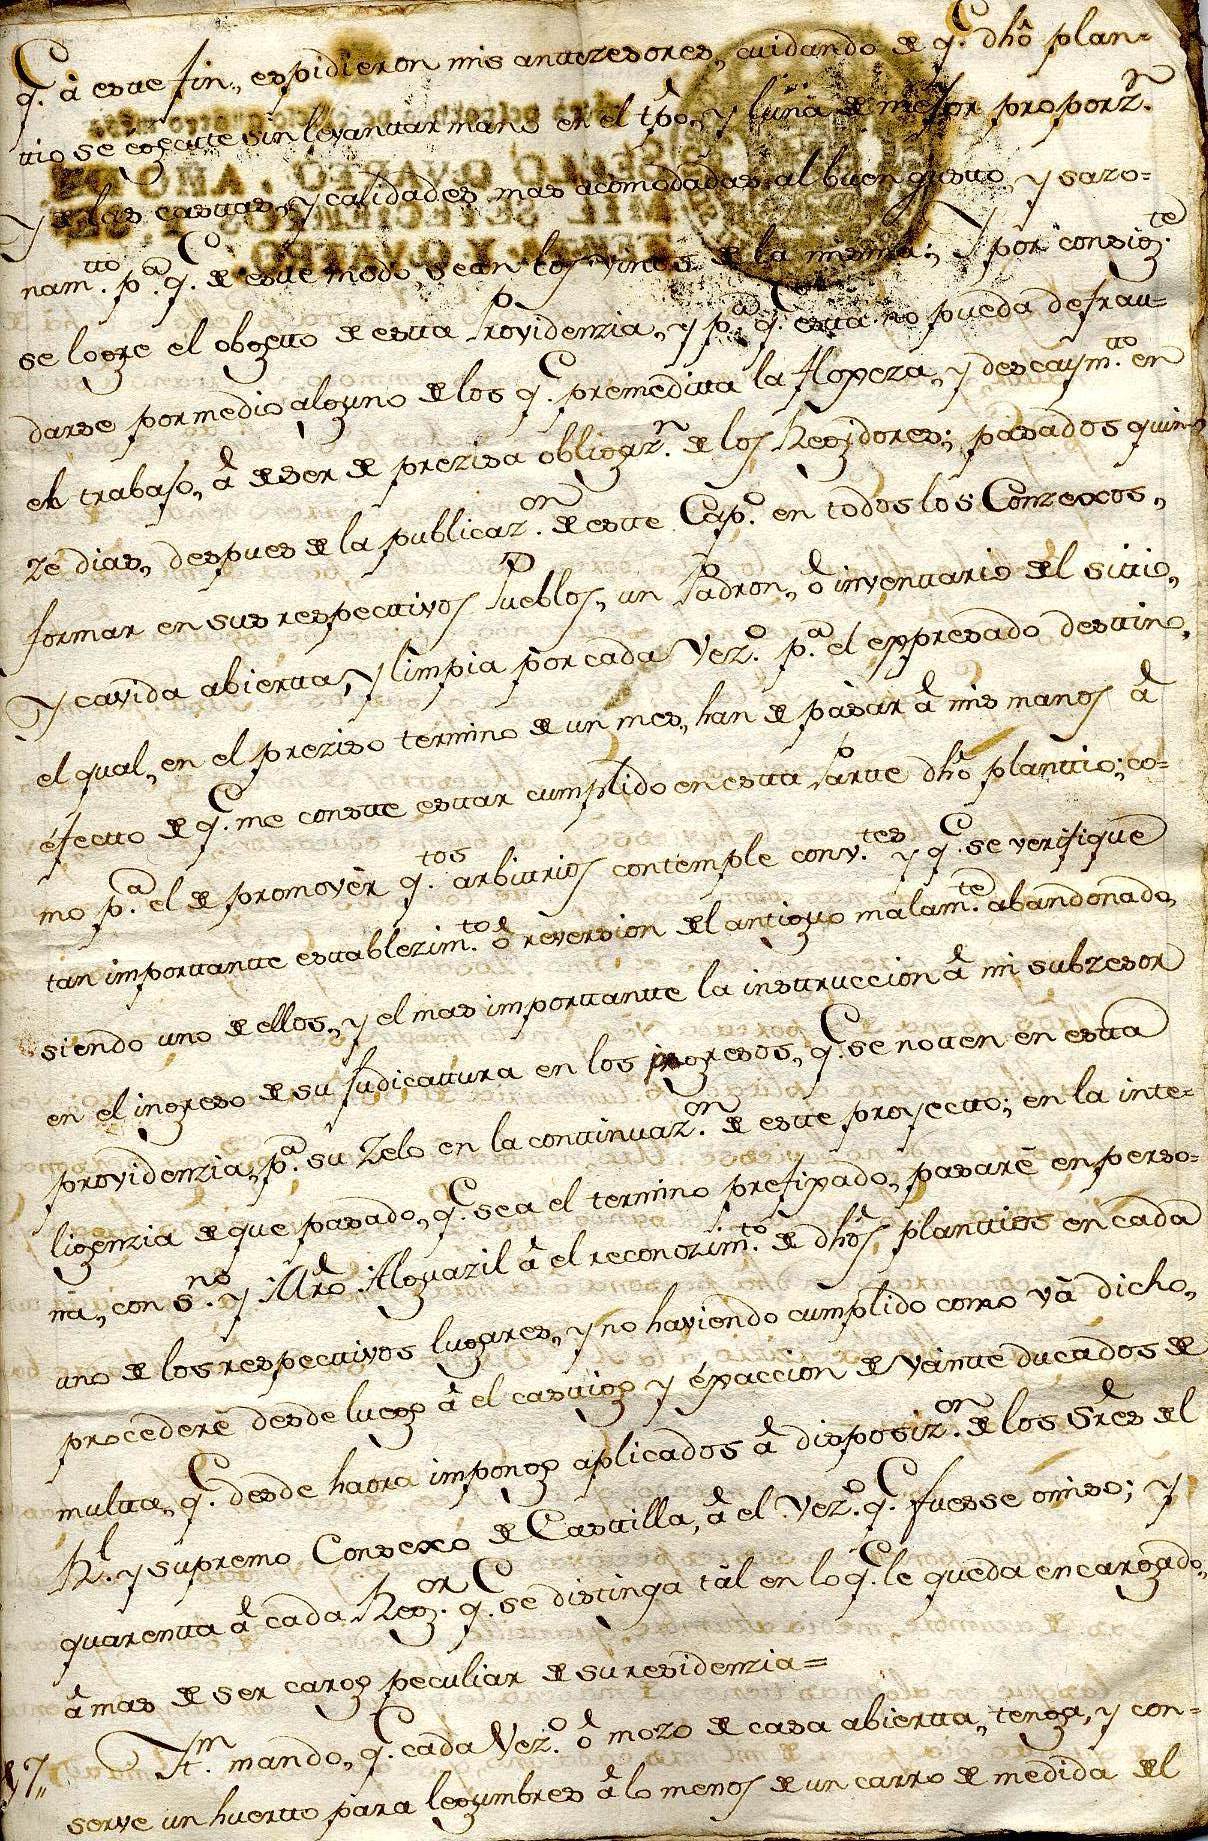 q.^e à este fin, espidieron mis antezesores, cuidando de q.^e dhô plan-
tio se egecute sin levantar mano en el tpô, y luna de mejor proporz.^n
y de las castas, y calidades mas acomodadas al buen gusto, y sazo-
nam.^to p.^a q.^e de este modo, sean los vinos de la misma; Y por consig.^te
se logre el obgeto de esta Providenzia, y p.^a q.^e esta no pueda defrau-
darse por medio alguno de los q.^e premedita la flogeza, y descaym.^to en
el trabajo, â de ser de prezisa obligaz.^n de los Regidores; pasados quin-
ze dias, despues de la publicaz.^on de este Cap.^o en todos los Conzexos,
formar en sus respectivos Pueblos, un Padron, ô inventario del sitio,
y cavida abierta, y limpia por cada Vez.^o p.^a el expresado destino,
el qual, en el preziso termino de un mes, han de pasar â mis manos â
efecto de q.^e me conste estar cumplido en esta Parte dhô plantio; co-
mo p.^a el de promover q.^tos arbitrios contemple conv.^tes y q.^e se verifique
tan importante establezim.^to ô reversion del antiguo malam.^te abandonado,
siendo uno de ellos, y el mas importante la instruccion â mi subzesor
en el ingreso de su Judicatura en los progresos, q.^e se noten en esta
providenzia, p.^a su Zelo en la continuaz.^on de este proyecto; en la inte-
ligenzia de que pasado, q.^e sea el termino prefixado, pasarê en perso-
na, con S.^no y Mrô Alguazil â el reconozim.^to de dhôs plantios en cada
uno de los respectivos lugares, y no haviendo cumplido como vâ dicho,
procederê desde luego â el castigo y éxaccion de vainte ducados de
multa, q.^e desde haora impongo aplicados â disposiz.^on de los Srês del
R.^l y supremo Consexo de Castilla, â el Vez.^o q.^e fuesse omiso; y
quarenta â cada Reg.^or q.^e se distinga tâl en lo q.^e le queda encargado,
â mas de ser cargo peculiar de su residenzia=
17,, Yt.^m mando, q.^e cada Vez.^o ô mozo de casa abierta, tenga, y con-
serve un huerto para legumbres â lo menos de un carro de medida del